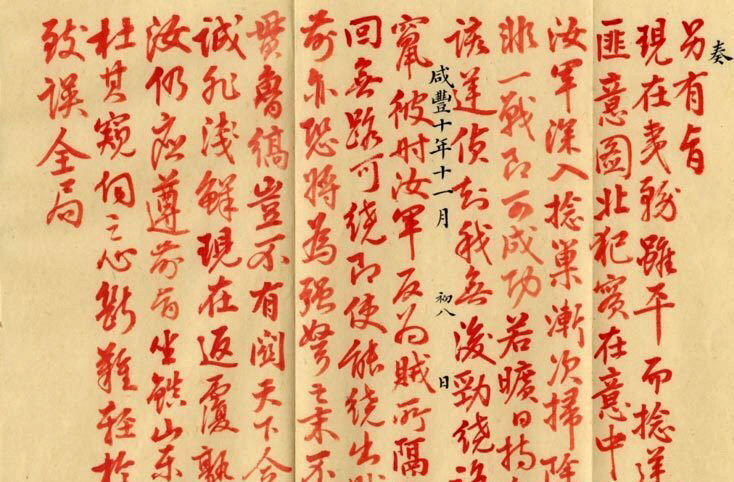 奏
另有旨
現在夷務雖平而捻
匪意圖北犯實在意中
汝軍深入捻巢漸次掃除
非一戰即可成功若曠日持
該逆偵知我無後勁繞
咸豐十年十一月 初八 日
竄彼時汝軍反為賊所隔
回無路可繞即使能繞出
前亦恐將為强弩之末不
貫魯縞豈不有関天下全
誠非淺鮮現在返覆
汝仍應遵前旨坐鎮山東
杜其窺伺之心斷難輕於
致誤全局